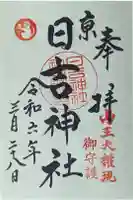 奉拝
山王大権現
御守護
京
日吉神社
令和六年
三月二八日